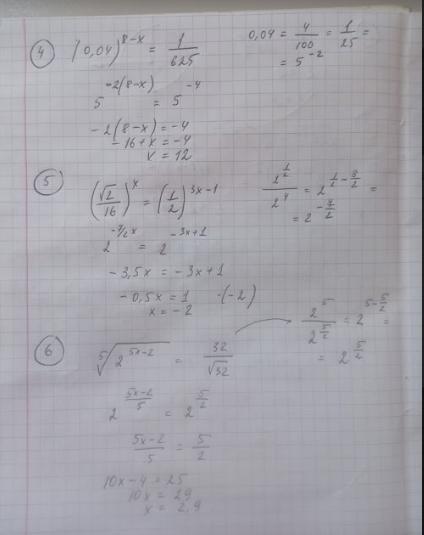 ④ (0,04)^{8-x} = 1/625
0,04 = 4/100 = 1/25 =
= 5^{-2}
5^{-2(8-x)} = 5^{-4}
-2(8-x) = -4
-16+x = -4
x = 12
⑤ (√2/16)^x = (1/2)^{3x-1}
2^{1/2}/2^4 = 2^{1/2 - 8/2} =
= 2^{-7/2}
2^{-7/2 x} = 2^{-3x+1}
-3,5x = -3x+1
-0,5x = 1 ·(-2)
x = -2
⑥ ⁵√(2^{5x-2}) = 32/√32
2^5/2^{5/2} = 2^{5-5/2} =
= 2^{5/2}
2^{(5x-2)/5} = 2^{5/2}
(5x-2)/5 = 5/2
10x-4 = 25
10x = 29
x = 2,9